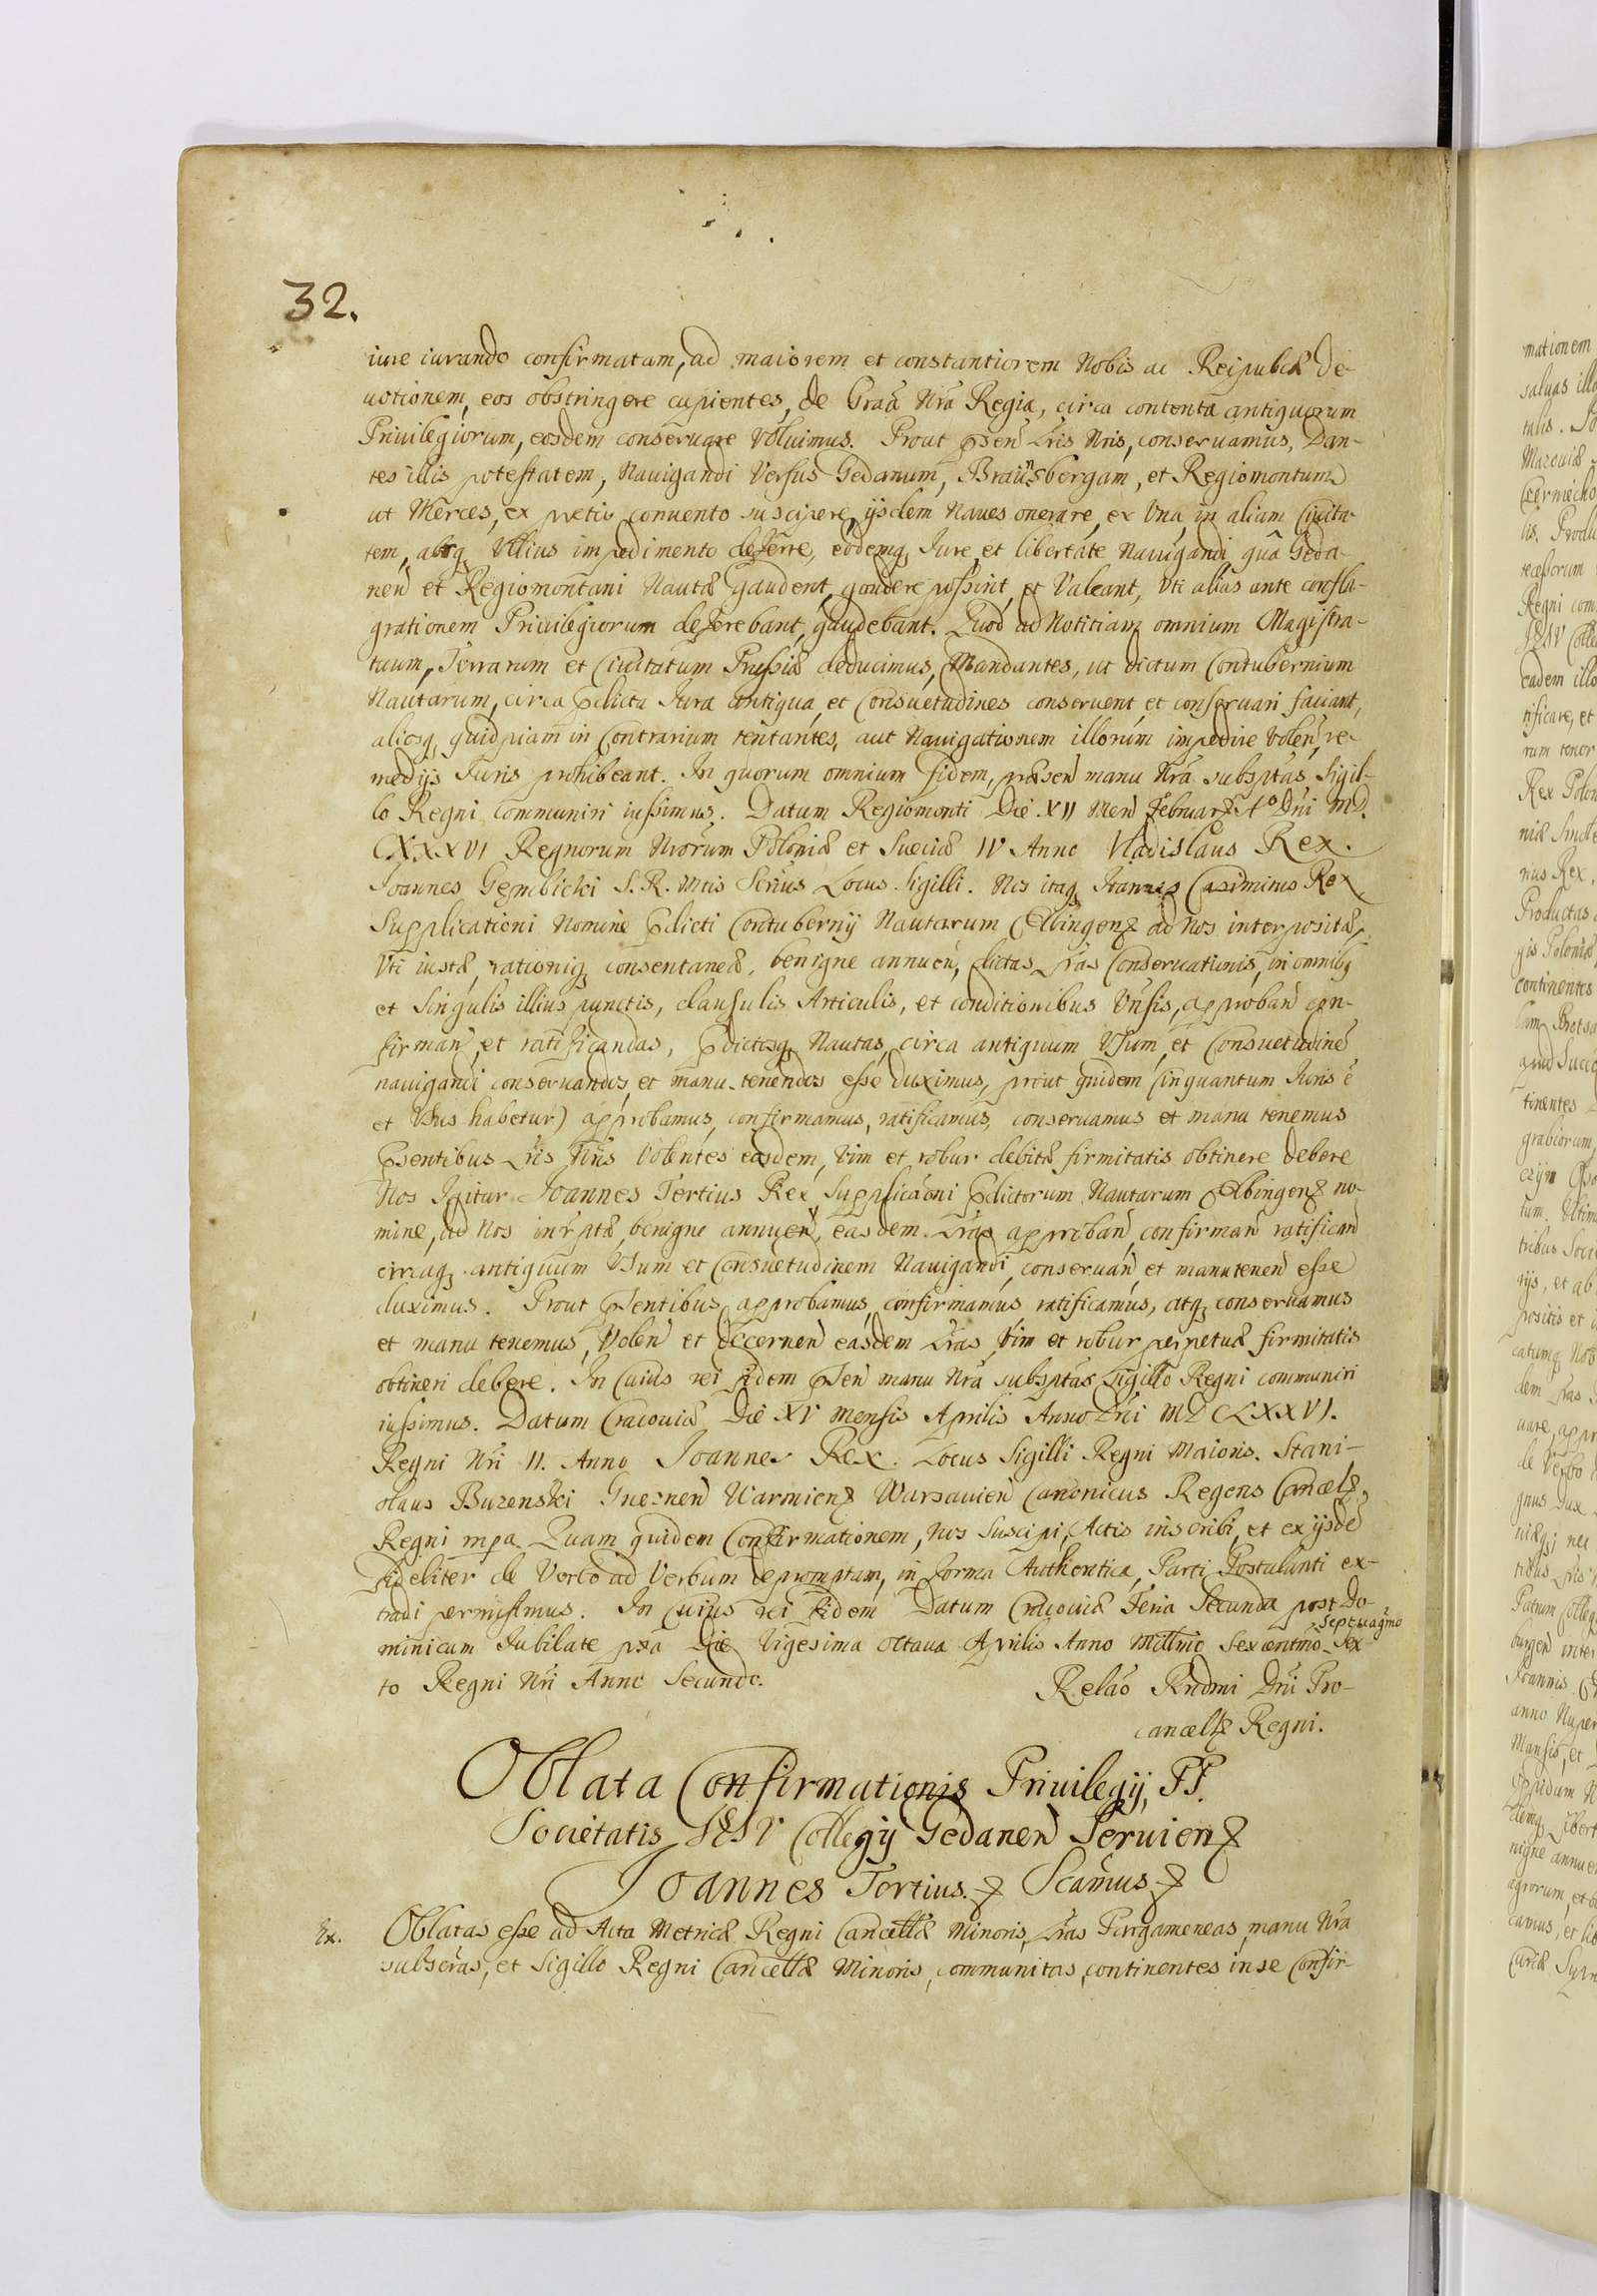 32.
iure iurando confirmatam, ad maiorem et constantiorem Nobis ac Reipubcæ De-
uotionem, eos obstringere cupientes, de Graã Nrã Regia, circa contenta antiquorum
Priuilegiorum, eosdem conseruare Voluimus. Prout psen Lris Nris, conseruamus, Dan-
tes illis potestatem, Nauigandi Versus Gedanum, Braünsbergam, et Regiomontum
ut Merces, ex pretio conuento suscipere, ijsdem Naues onerare, ex Vna, in aliam Ciuita-
tem, absq Vllius impedimento deferre, eodemq Iure et libertate Nauigandi, quâ Geda-
nen et Regiomontani Nautæ Gaudent, gaudere possint, et Valeant, Vti alias ante confla-
grationem Priuilegiorum deferebant, gaudebant. Quod ad Notitiam omnium Magistra-
tuum, Terrarum et Ciuitatum Prussiæ deducimus, Mandantes, ut dictum Contubernium
Nautarum, circa pdicta Iura antiqua, et Consuetudines conseruent et conseruari faciant,
aliosq quidpiam in Contrarium tentantes, aut Nauigationem illorum impedire Volen, re-
medijs Iuris prohibeant. In quorum omnium fidem, præsen manu Nrã subsptas, Sigil-
lo Regni communiri iussimus. Datum Regiomonti Die XII Men Februar Aº Dni MD.
CXXXVI Regnorum Nrorum Poloniæ et Sueciæ IV Anno Vladislaus Rex.
Ioannes Gembicki S. R. Mtis Scrius Locus Sigilli. Nos itaq Ioannes Casimirus Rex
Supplicationi Nomine pdicti Contubernij Nautarum Elbingen ad Nos interpositæ,
Vti iustæ, rationiq consentaneæ, benigne annuen, dictas Lras Conseruationis, in omnibq
et Singulis illius punctis, clausulis Articulis, et conditionibus Vnsis, approban con-
firman, et ratificandas, pdictosq Nautas, circa antiquum Vsum, et Consuetudinẽ
nauigandi conseruandos, et manu-tenendos esse duximus, prout quidem (inquantum Iuris ẽ
et Vsus habetur) approbamus, confirmamus, ratificamus, conseruamus et manu tenemus
psentibus Lris Nris Volentes easdem, Vim et robur debitæ firmitatis obtinere debere
Nos Igitur Ioannes Tertius Rex, Supplicaõni pdictorum Nautarum Elbingen no-
mine, ad Nos intrptæ, benigne annuen, easdem Lras approban, confirman ratifican
circaq antiquum Vsum et Consuetudinem Nauigandi, conseruan, et manutenen esse
duximus. Prout psentibus approbamus, confirmamus ratificamus, atq conseruamus
et manu tenemus, Volen et decernen easdem Lras, Vim et robur perpetuæ firmitatis
obtineri debere. In Cuius rei fidem psen manu Nrã subsptas, Sigillo Regni communiri
iussimus. Datum Cracouiæ Die XV Mensis Aprilis Anno Dni MDCLXXVI.
Regni Nri II. Anno Ioannes Rex. Locus Sigilli Regni Maioris. Stani-
olaus Buzenski Gnesnen Warmien Warsauien Canonicus Regens Cancell
Regni mpa. Quam quidem Confirmationem, Nos Suscipi, Actis inscribi, et ex ijsdẽ
fideliter de Verbo ad Verbum depromptam, in forma Authentica, Parti Postulanti ex-
tradi permisimus. In Cuius rei fidem Datum Cracouiæ Feria Secunda post Do-
minicam Iubilate pxã Die Vigesima octaua Aprilis Anno Millmo Sexcentmo Septuagmo Sex-
to Regni Nri Anno Secundo.
Relaõ Rndmi Dni Pro-
cancell Regni.
Oblata Confirmationis Priuilegij, PP.
Societatis IESV Collegij Gedanen Seruien
Ioannes Tertius. Scamus
Ex. Oblatas esse ad Acta Metricæ Regni Cancellæ Minoris, Lras Pargameneas, manu Nrã
subscras, et Sigillo Regni Cancellæ Minoris, communitas, continentes in se Confir-